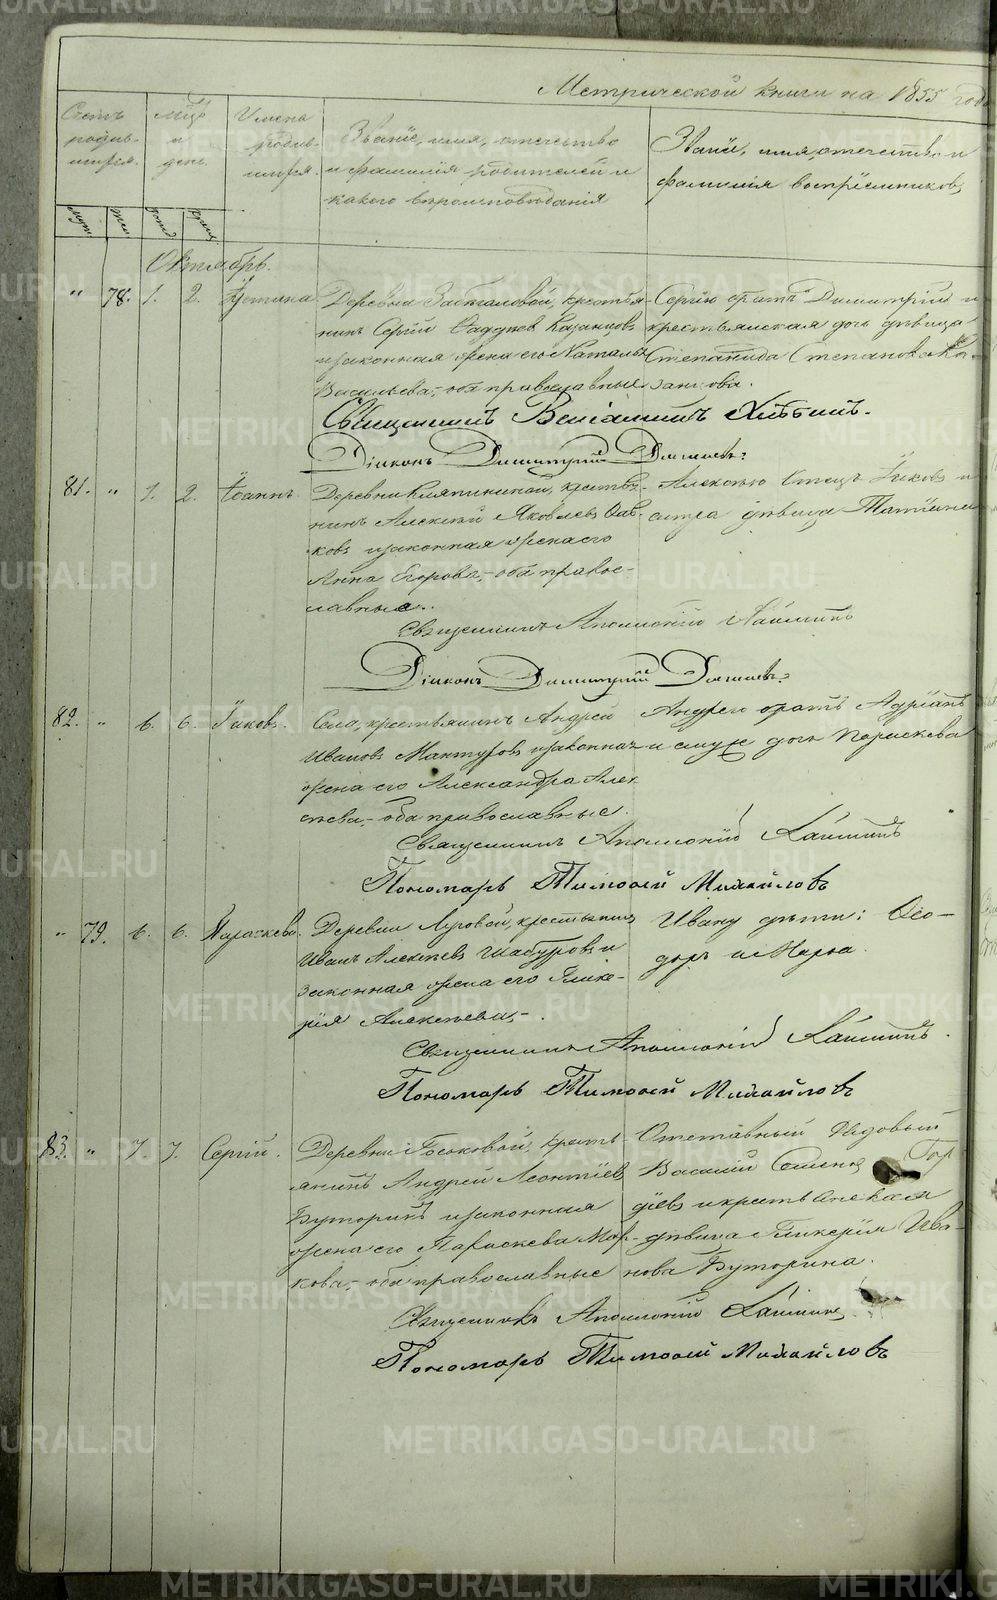 Метрической книги на 1855 год
Счетъ родившихся.
Мѣсяцъ и день.
Имена родившихся.
Званіе, имя, отчество и фамилія родителей и какого вѣроисповѣданія
Званіе, имя, отчество и фамилія воспріемниковъ
Октябрь.
" 78. 1. 2. Устина
Деревни крестья-
нинъ Сергій Казанцовъ
и законная жена его Наталья
Васильева, оба православные
Сергію братъ Димитрій и
крестьянская дочь дѣвица
Степанида Степанова Ка-
занцова.
Священникъ Веніаминъ
Діаконъ Димитрій
81. " 1. 2. Іоаннъ.
Деревни крестья-
нинъ Алексѣй Яковлевъ
ковъ и законная жена его
Анна Егорова, оба правос-
лавные.
Алексѣю отецъ Іаковъ и
сестра дѣвица Татіана
Священникъ Аполлоній
Діаконъ Димитрій
82. " 6. 6. Іаковъ.
Села, крестьянинъ Андрей
Ивановъ Мантуровъ и законная
жена его Александра Алек
сѣева, оба православные.
Андрею братъ Адріанъ
и ему же дочь Параскева
Священникъ Аполлоній
Пономарь Тимоѳей Михайловъ
" 79. 6. 6. Параскева.
Деревни Луговой, крестьянинъ
Иванъ Алексѣевъ Шабуровъ и
законная жена его Глике-
рія Алексѣева,-
Ивану дѣти: Ѳео-
доръ и Марѳа.
Священникъ Аполлоній
Пономарь Тимоѳей Михайловъ
83. " 7. 7. Сергій.
Деревни кресть-
янинъ Андрей Леонтіевъ
Буторинъ и законная
жена его Параскева Мар-
кова, оба православные
Отставный рядовый
Василій Семеновъ Гор
дѣевъ и крестьянская
дѣвица Гликерія Ива-
нова Буторина.
Священникъ Аполлоній
Пономарь Тимоѳей Михайловъ
METRIKI.GASO-URAL.RU